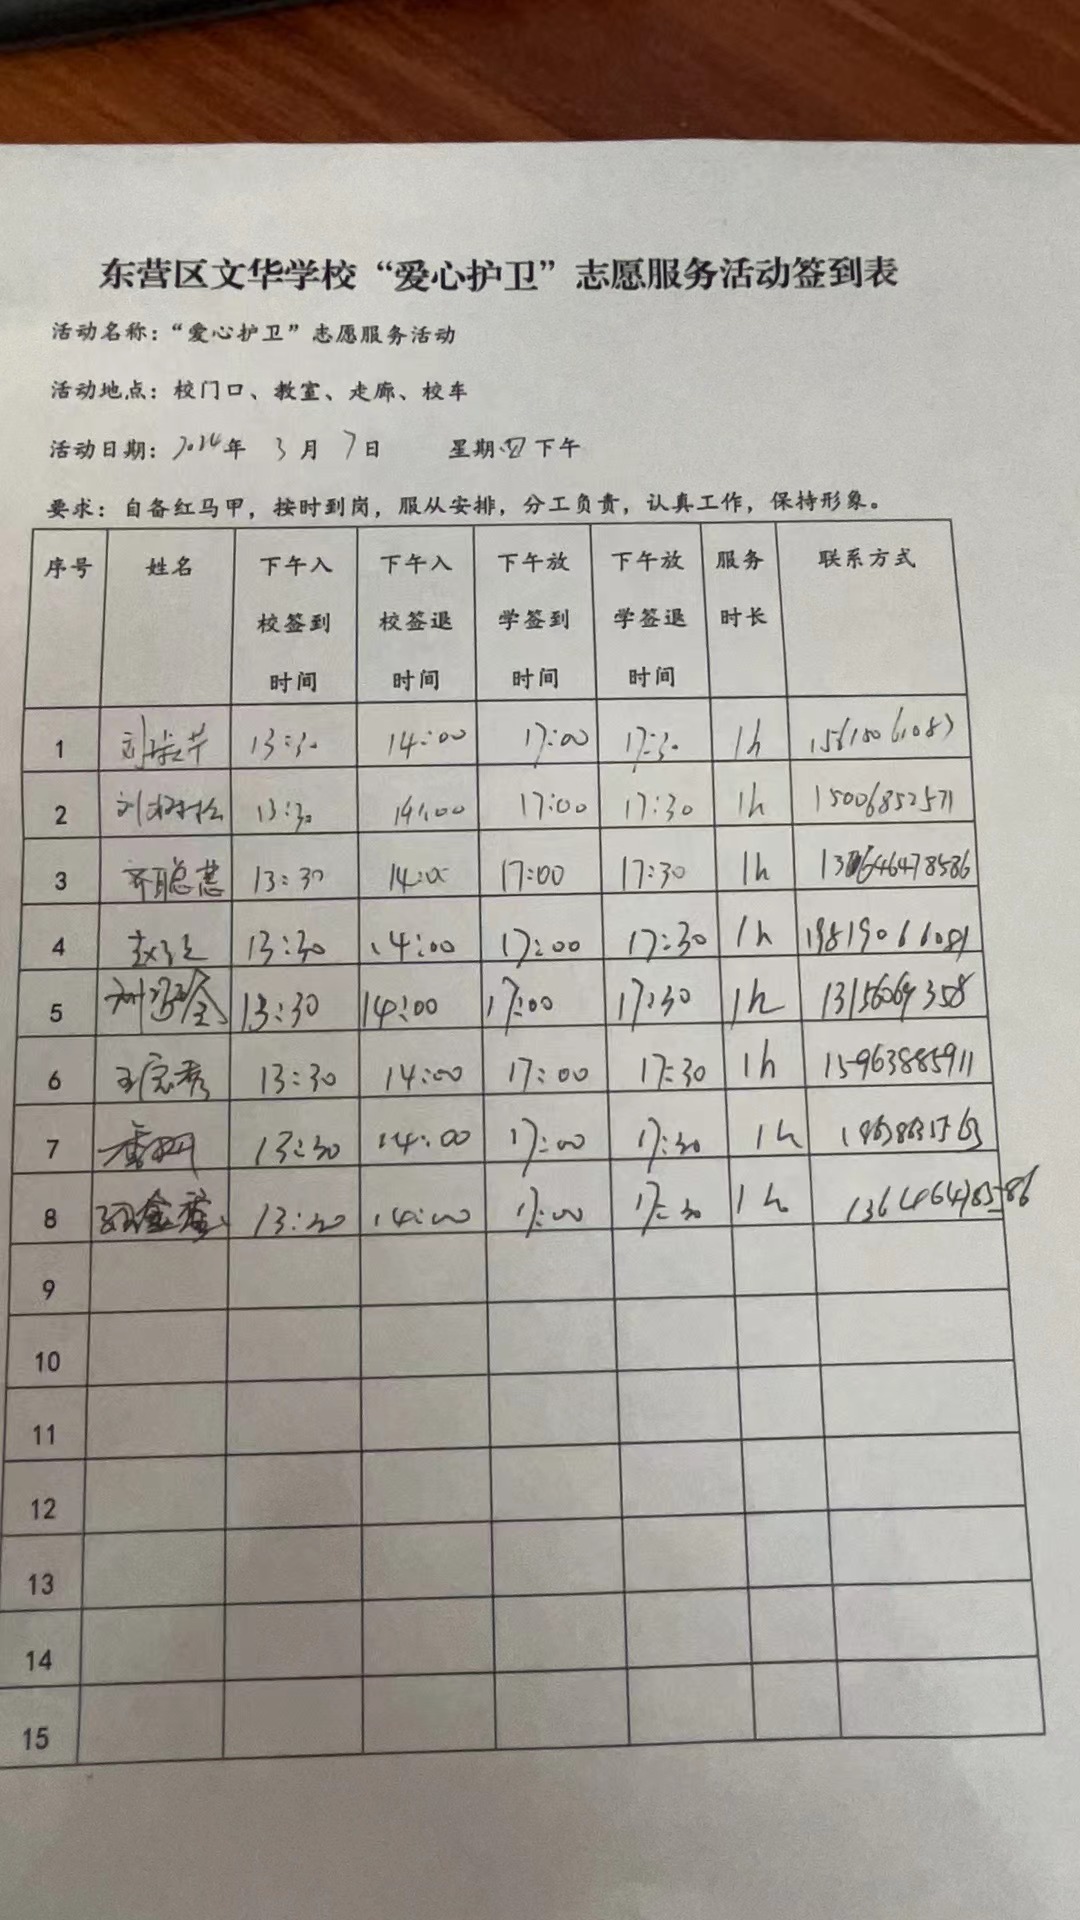 东营区文华学校“爱心护卫”志愿服务活动签到表
活动名称：“爱心护卫”志愿服务活动
活动地点：校门口、教室、走廊、校车
活动日期：2024年 3月 7日 星期四下午
要求：自备红马甲，按时到岗，服从安排，分工负责，认真工作，保持形象。
序号 姓名 下午入校签到时间 下午入校签退时间 下午放学签到时间 下午放学签退时间 服务时长 联系方式
1 13:30 14:00 17:00 17:30 1h
2 13:30 14:00 17:00 17:30 1h 15006852571
3 齐聪慧 13:30 14:00 17:00 17:30 1h
4 13:30 14:00 17:00 17:30 1h 19819066081
5 13:30 14:00 17:00 17:30 1h
6 13:30 14:00 17:00 17:30 1h 15963885911
7 13:30 14:00 17:00 17:30 1h
8 13:30 14:00 17:00 17:30 1h 13646478586
9
10
11
12
13
14
15